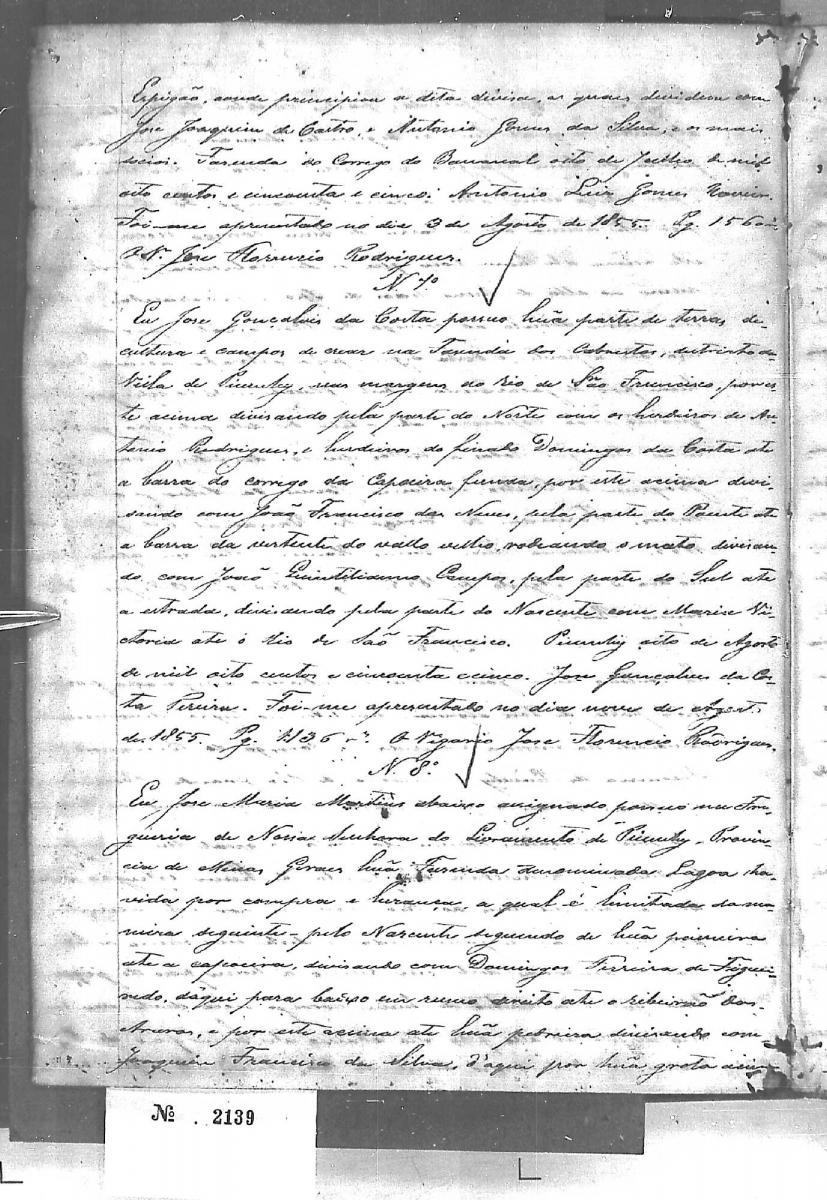 Espigão, aonde principiou a dita divisa, as quaes dividem com
Jose Joaquim de Castro, e Antonio Gomes da Silva, e os mais
socios. Fazenda do Corrego do Bananal oito de Julho de mil
oito centos e cincoenta e cinco. Antonio Luis Gomes
Foi-me apresentado no dia 3 de Agosto de 1855. Pg. 1560
O Vº Jose Florencio Rodrigues.
N 7º
Eu Jose Gonçalves da Costa possuo huã parte de terras de
cultura e campos de crear na Fazenda dos Cabrestos, destricto da
Villa de Piumhy, nas margens do Rio de São Francisco, por es-
te acima divisando pela parte do Norte com os herdeiros de An-
tonio Rodrigues, e herdeiros do finado Domingos da Costa até
a barra do corrego da Capoeira funda, por este acima divi-
sando com João Francisco das Neves, pela parte do Poente até
a barra da vertente do vallo velho, rodeando o mato, divisan-
do com João Quintilianno Campos, pela parte do Sul até
a estrada, dividindo pela parte do Nascente com Maria Vi-
ctoria até o Rio de São Francisco. Piumhy oito de Agosto
de mil oito centos e cincoenta e cinco. Jose Gonçalves da Cos-
ta Pereira. Foi-me apresentado no dia nove de Agosto
de 1855. Pg. O Vigario Jose Florencio Rodrigues.
N. 8º
Eu Jose Maria Martins abaixo assignado possuo na Fre-
guesia de Nossa Senhora do Livramento de Piumhy, Provin-
cia de Minas Geraes huã Fazenda denominada Lagoa ha-
vida por compra e herança, a qual é limitada da ma-
neira seguinte - pelo Nascente seguindo de huã
até a capoeira, divisando com Domingos Ferreira de Figuei-
redo, d'aqui para baixo em rumo direito até o ribeirão dos
Arieros, e por este acima até huã pedreira divisando com
Joaquim Francisco da Silva, d'aqui por huã grota acima
Nº . 2139